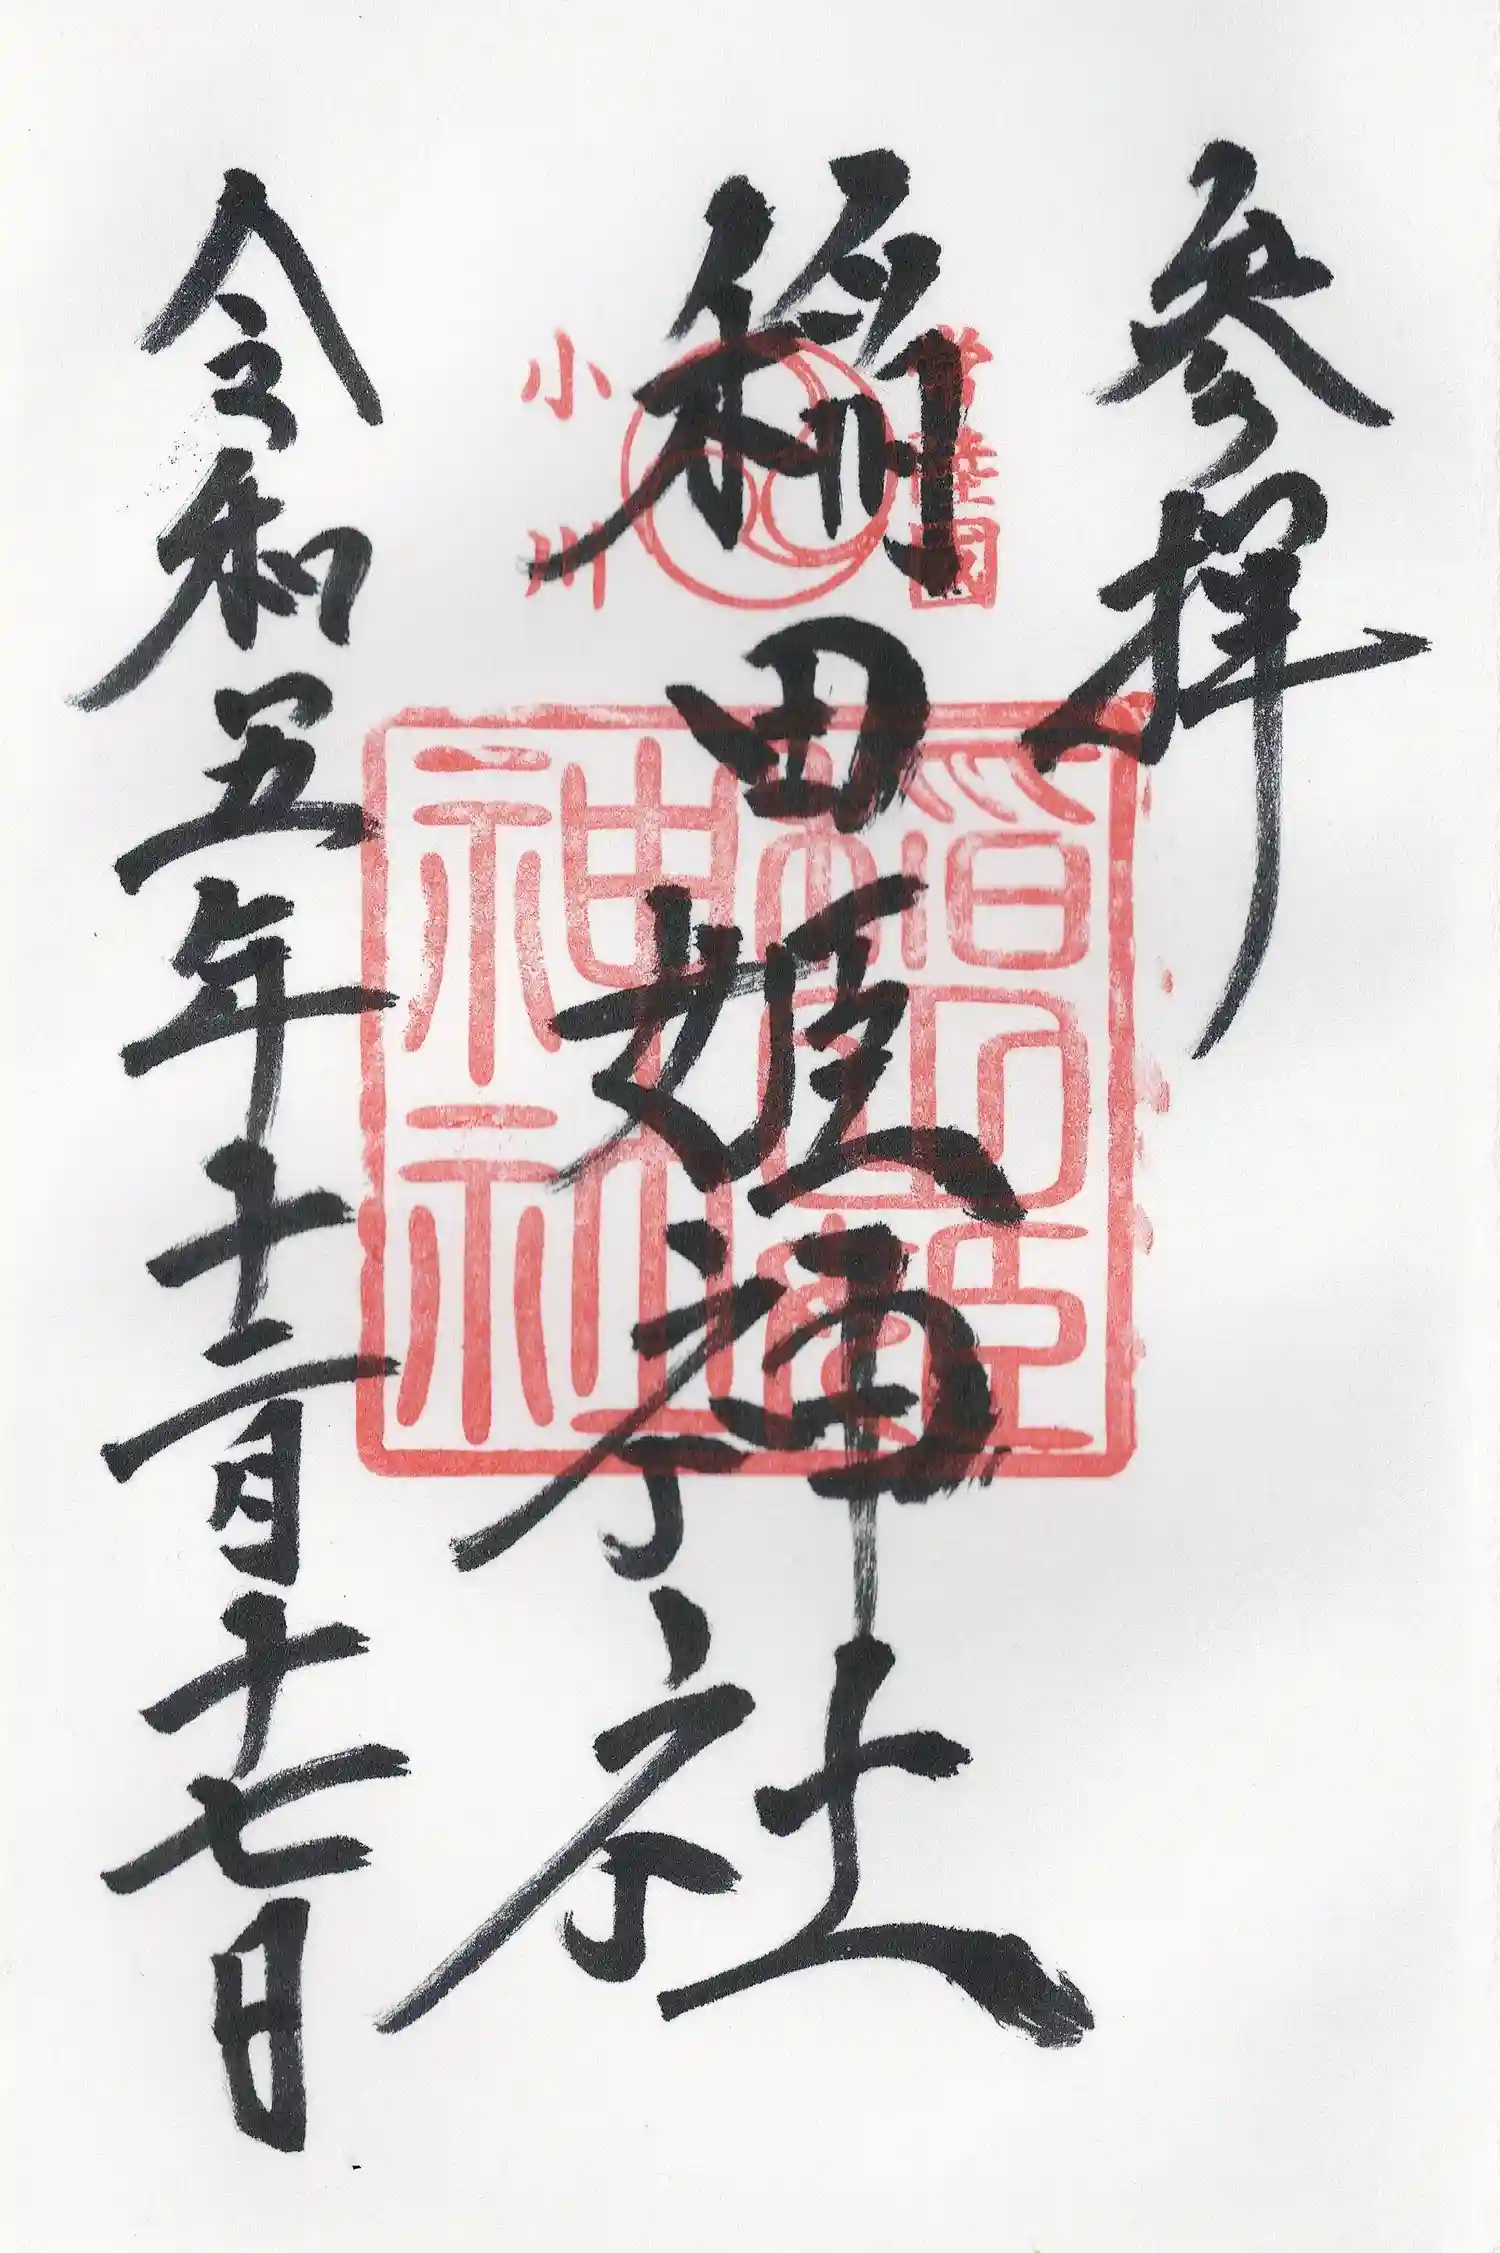 参拝
常陸國
稲田姫神社
小川
稻田姫
神社
令和五年十二月十七日